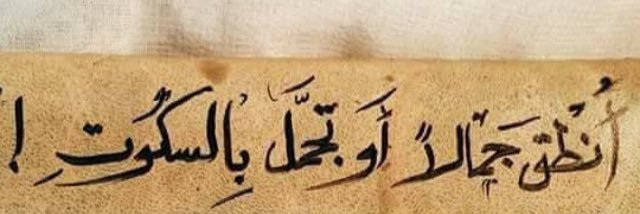 أُنْطق جَمَالاً أَو تجمَّل بِالسكُوتِ !